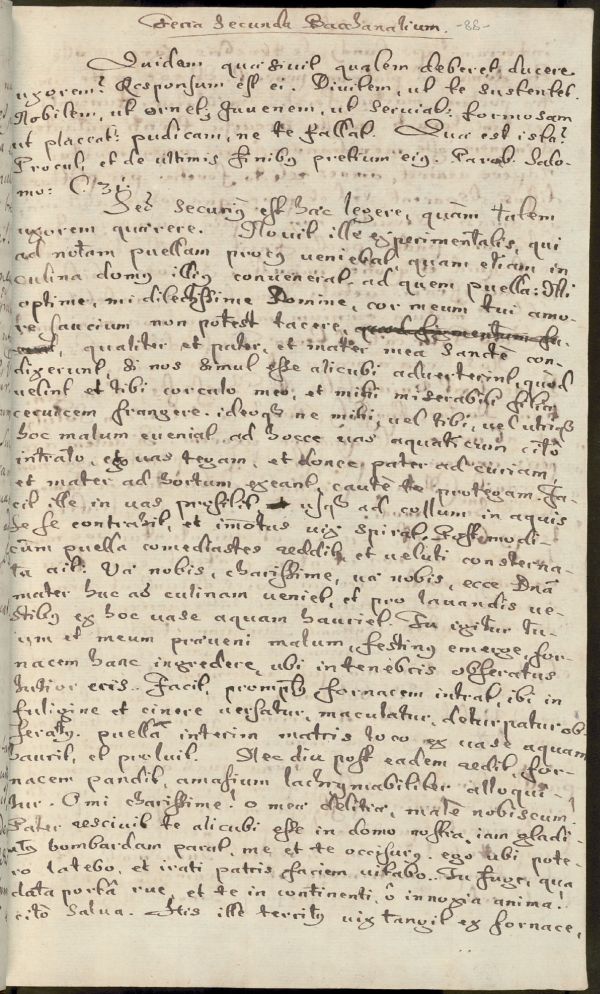 Feria Secunda Bacchanalium. -88-
Quidam quaesivit qualem deberet ducere
uxorem? Responsum est ei. Divitem, ut te sustentet.
Nobilem, ut ornet, Juvenem, ut serviat: formosam
ut placeat: pudicam, ne te fallat. Quae est ista?
Procul, et de ultimis finibꝰ pretium eiꝰ. Parab. Salo-
mo: C. 31.
Sed securiꝰ est haec legere, quàm talem
uxorem quaerere. Novit ille experimentalis, qui
ad notam puellam procꝰ veniebat, quam etiam in
culina domꝰ illiꝰ convenerat, ad quem puella: Mi
optime, mi dilectissime Domine, cor meum tui amo-
re saucium non potest tacere,
qualiter et pater, et mater mea sancte con-
dixerunt, si nos simul esse alicubi adverterint, quòd
velint et tibi corculo meo, et mihi miserabili filiae
cervicem frangere. ideoqꝫ ne mihi, vel tibi, vel utriqꝫ
hoc malum eveniat, ad hocce vas aquaticum citò
intrato, ego vas tegam, et donec pater ad curiam
et mater ad hortum exeant, cautè te protegam. Fa-
cit ille, in vas prosilit, usqꝫ ad collum in aquis
se se contrahit, et imotus vix spirat. Post modi-
cùm puella comediastes reddit, et veluti consterna-
ta ait: Vae nobis, charissime, vae nobis, ecce Dnã
mater huc ad culinam veniet, et pro lavandis ve-
stibꝰ ex hoc vase aquam hauriet. Tu igitur tu-
um et meum praeveni malum, festinꝰ emerge, for-
nacem hanc ingredere, ubi in tenebris obseratus
tutior eris. Facit, promptꝰ fornacem intrat, ibi in
fuligine et cinere versatur, maculatur, deturpatur ob-
seratꝰ. puella interim matris loco ex vase aquam
haurit, et proluit. Nec diu post eadem redit, for-
nacem pandit, amasium lachrymabiliter alloqui-
tur. O mi charissime! o mea delitia, malè nobiscum!
Pater rescivit te alicubi esse in domo nostra, iam gladi-
bombardam parat, me et te occisurꝰ. ego ubi pote-
ro latebo, et irati patris faciem vitabo. Tu fuge, quà
data portâ rue, et te in continenti, ô innoxia anima!
citò salva. His ille territꝰ vix tangit ex fornace,